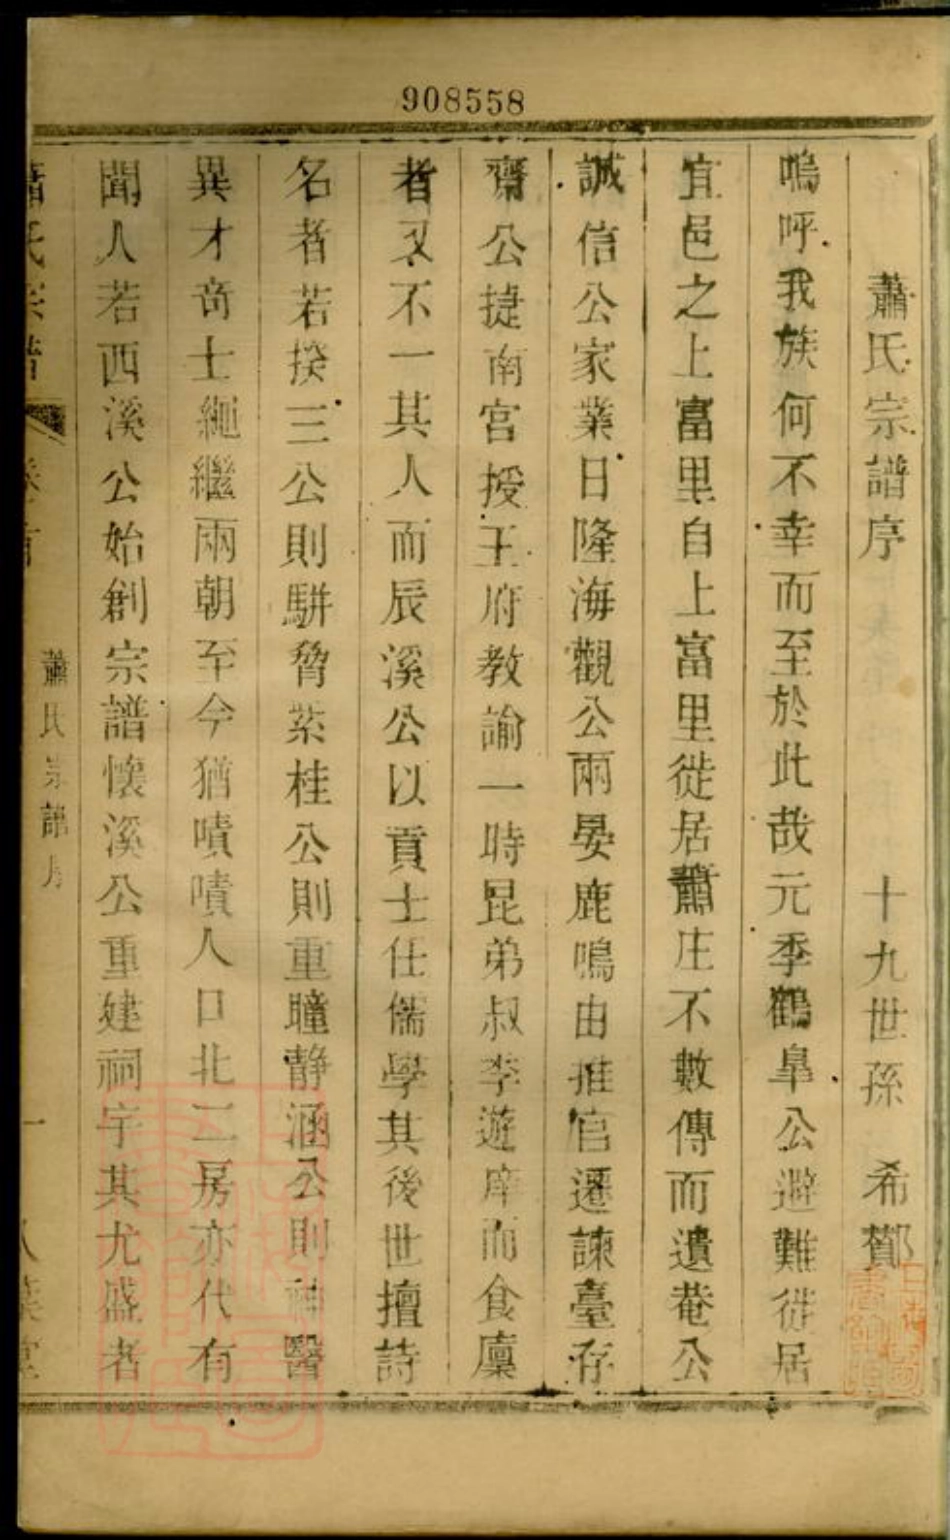 908558
蕭氏宗譜序 十九世孫 希酇
嗚呼我族何不幸而至於此哉元季鶴皐公避難徙居
宜邑之上富里自上富里徙居蕭庄不數傳而遺菴公
誠信公家業日隆海觀公兩晏鹿鳴由推官遷諫臺存
齋公捷南宮授王府教諭一時昆弟叔季遊庠而食廩
者又不一其人而辰溪公以貢士仕儒學其後世擅詩
名者若揆三公則駢脅紫桂公則重瞳靜涵公則神醫
異才奇士繩繼兩朝至今猶嘖嘖人口北二房亦代有
聞人若西溪公始創宗譜懷溪公重建祠宇其尤盛者
蕭氏宗譜 卷首 蕭氏宗譜序 一 八葉堂